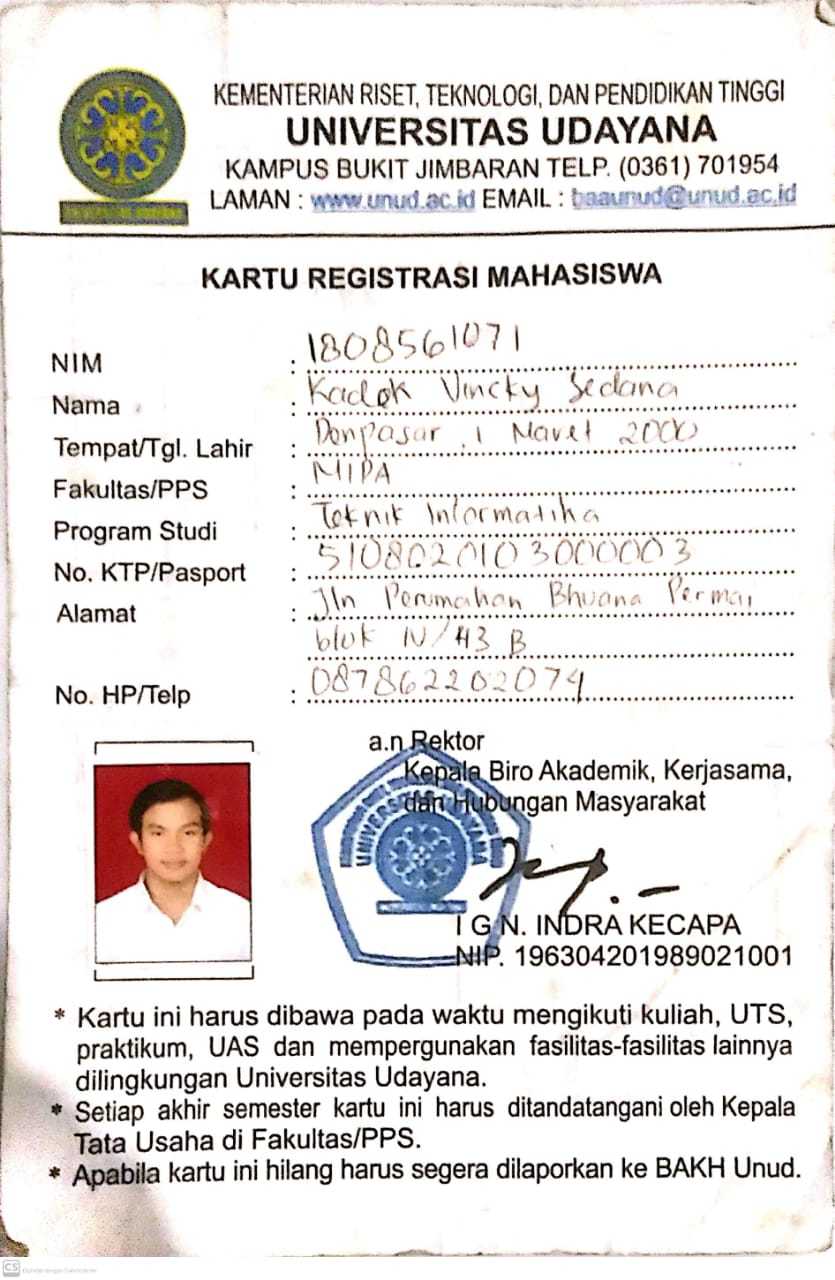 KEMENTERIAN RISET, TEKNOLOGI, DAN PENDIDIKAN TINGGI
UNIVERSITAS UDAYANA
KAMPUS BUKIT JIMBARAN TELP. (0361) 701954
LAMAN : www.unud.ac.id EMAIL : baaunud@unud.ac.id
KARTU REGISTRASI MAHASISWA
NIM : 1808561071
Nama : Kadek Vincky Sedana
Tempat/Tgl. Lahir : Denpasar, 1 Maret 2000
Fakultas/PPS : MIPA
Program Studi : Teknik Informatika
No. KTP/Pasport : 5108020103000003
Alamat : Jln Perumahan Bhuana Permai
blok IV/43 B
No. HP/Telp : 087862202074
a.n Rektor
Kepala Biro Akademik, Kerjasama,
dan Hubungan Masyarakat
UNIVERSITAS UDAYANA
I G N. INDRA KECAPA
NIP. 196304201989021001
* Kartu ini harus dibawa pada waktu mengikuti kuliah, UTS,
praktikum, UAS dan mempergunakan fasilitas-fasilitas lainnya
dilingkungan Universitas Udayana.
* Setiap akhir semester kartu ini harus ditandatangani oleh Kepala
Tata Usaha di Fakultas/PPS.
* Apabila kartu ini hilang harus segera dilaporkan ke BAKH Unud.
CS